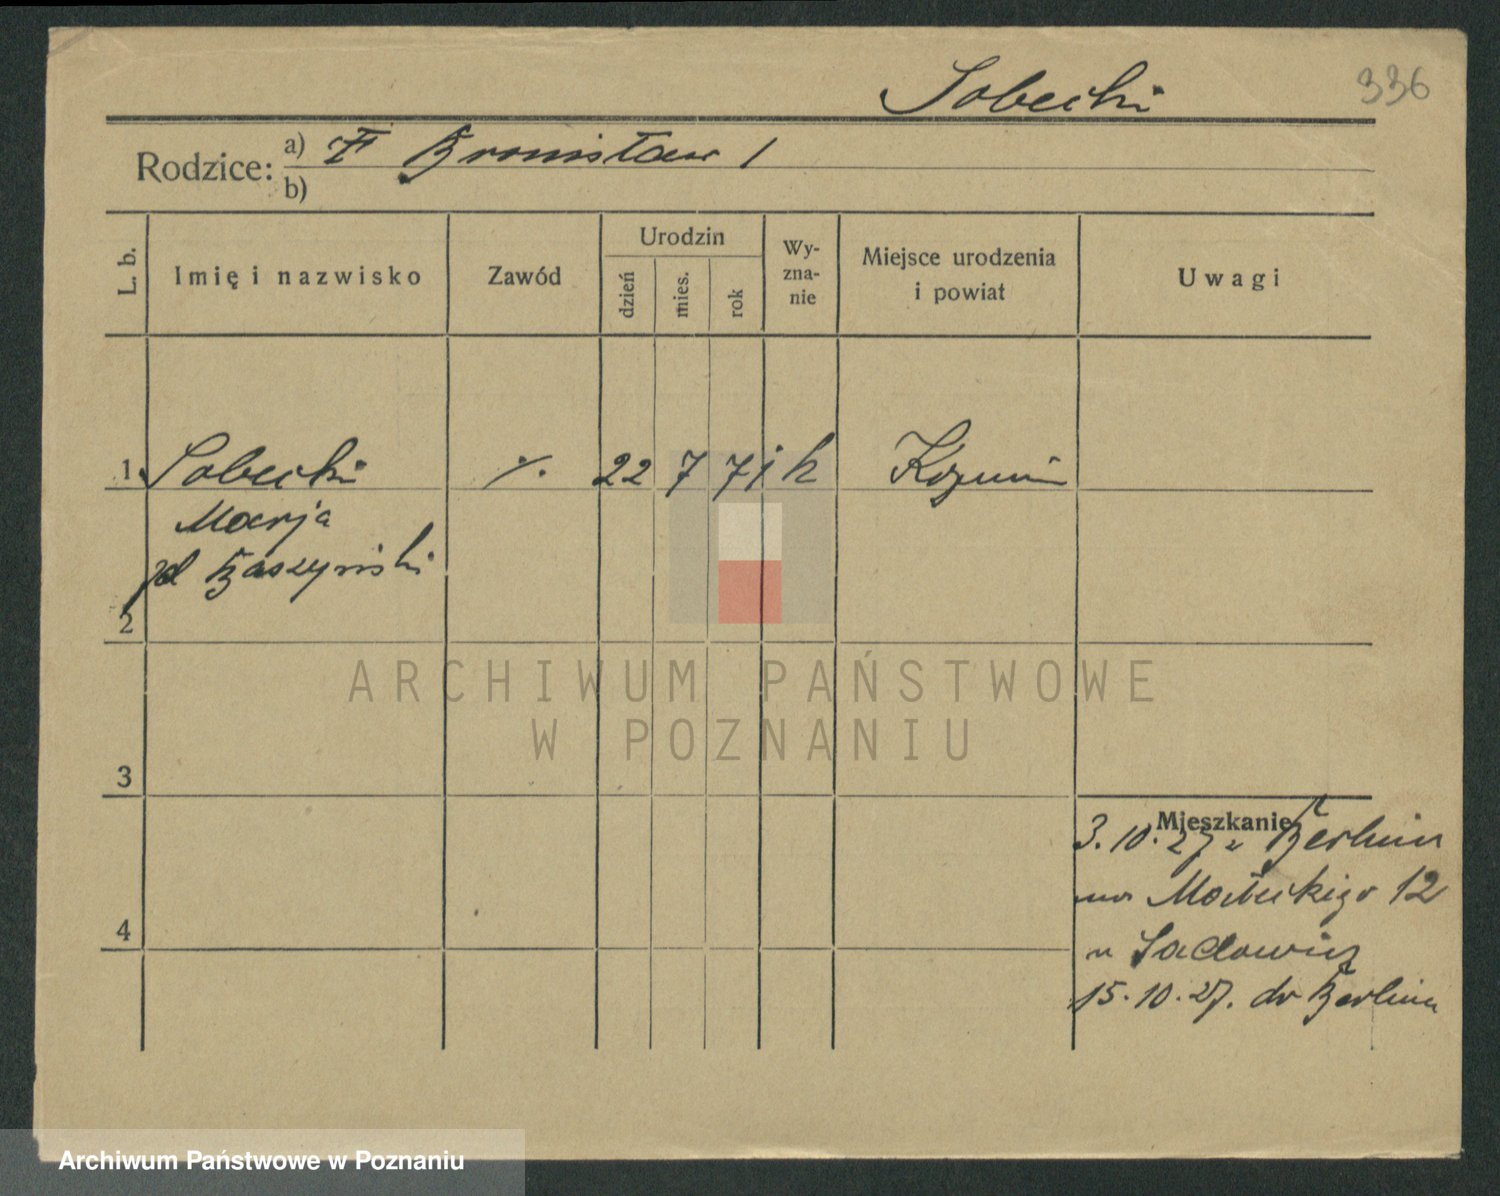 Sobecki
336
Rodzice:
a) Bronisław 1
b)
L. b.
Imię i nazwisko
Zawód
Urodzin
dzień
mies.
rok
Wy-
zna-
nie
Miejsce urodzenia
i powiat
Uwagi
1 Sobecki ·/. 22 7 71 k
Marja
2
ARCHIWUM PAŃSTWOWE
W POZNANIU
3
Mieszkanie
3.10.27 z Berlina
12
4
15.10.27. do Berlina
Archiwum Państwowe w Poznaniu